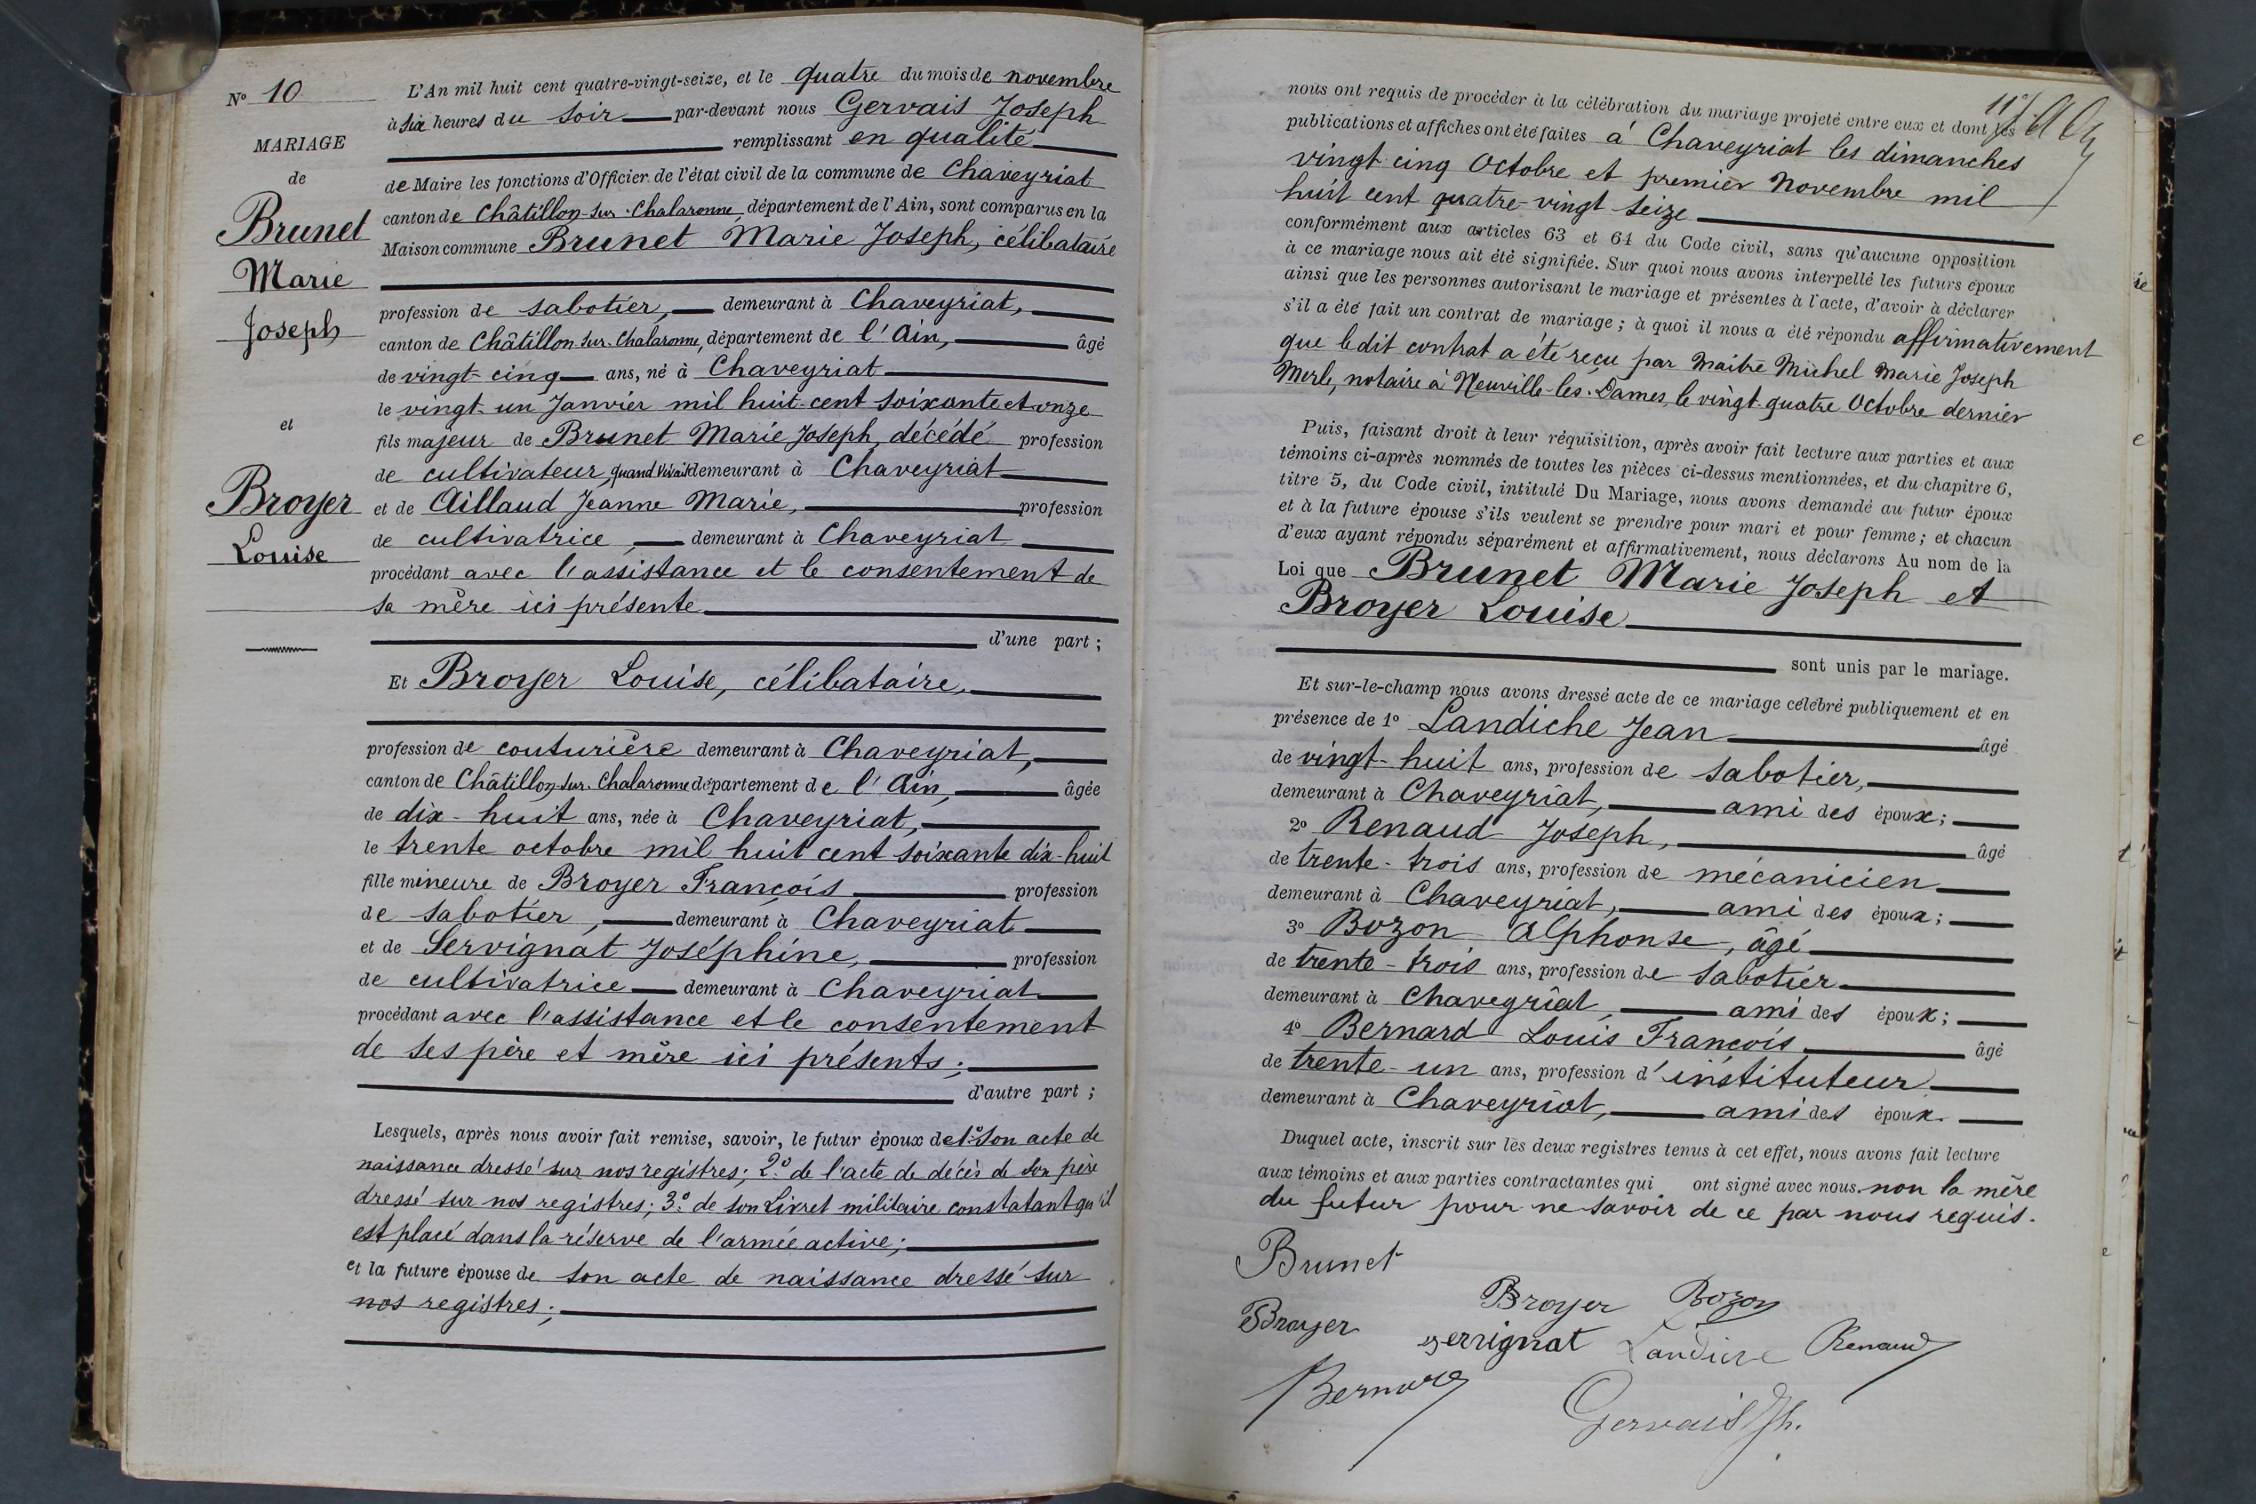 N° 10
MARIAGE
de
Brunet
Marie
Joseph
et
Broyer
Louise
L'An mil huit cent quatre-vingt-seize, et le quatre du mois de novembre
à six heures du soir par-devant nous Gervais Joseph
remplissant en qualité
de Maire les fonctions d'Officier de l'état civil de la commune de Chaveyriat
canton de Châtillon-sur-Chalaronne, département de l'Ain, sont comparus en la
Maison commune Brunet Marie Joseph, célibataire
profession de sabotier, demeurant à Chaveyriat,
canton de Châtillon-sur-Chalaronne, département de l'Ain, âgé
de vingt-cinq ans, né à Chaveyriat
le vingt-un Janvier mil huit-cent soixante et onze
fils majeur de Brunet Marie Joseph, décédé profession
de cultivateur, quand vivait demeurant à Chaveyriat
et de Aillaud Jeanne Marie, profession
de cultivatrice, demeurant à Chaveyriat
procédant avec l'assistance et le consentement de
sa mère ici présente
d'une part ;
Et Broyer Louise, célibataire,
profession de couturière demeurant à Chaveyriat,
canton de Châtillon-sur-Chalaronne département de l'Ain, âgée
de dix-huit ans, née à Chaveyriat,
le trente octobre mil huit cent soixante dix-huit
fille mineure de Broyer François profession
de sabotier, demeurant à Chaveyriat
et de Servignat Joséphine, profession
de cultivatrice demeurant à Chaveyriat
procédant avec l'assistance et le consentement
de ses père et mère ici présents ;
d'autre part ;
Lesquels, après nous avoir fait remise, savoir, le futur époux de 1° Son acte de
naissance dressé sur nos registres ; 2° de l'acte de décès de son père
dressé sur nos registres ; 3° de son Livret militaire constatant qu'il
est placé dans la réserve de l'armée active ;
et la future épouse de son acte de naissance dressé sur
nos registres ;
11e
nous ont requis de procéder à la célébration du mariage projeté entre eux et dont les
publications et affiches ont été faites à Chaveyriat les dimanches
vingt cinq Octobre et premier Novembre mil
huit cent quatre-vingt seize
conformément aux articles 63 et 64 du Code civil, sans qu'aucune opposition
à ce mariage nous ait été signifiée. Sur quoi nous avons interpellé les futurs époux
ainsi que les personnes autorisant le mariage et présentes à l'acte, d'avoir à déclarer
s'il a été fait un contrat de mariage ; à quoi il nous a été répondu affirmativement
que le dit contrat a été reçu par Maître Michel Marie Joseph
Merle, notaire à Neuville-les-Dames, le vingt-quatre Octobre dernier
Puis, faisant droit à leur réquisition, après avoir fait lecture aux parties et aux
témoins ci-après nommés de toutes les pièces ci-dessus mentionnées, et du chapitre 6,
titre 5, du Code civil, intitulé Du Mariage, nous avons demandé au futur époux
et à la future épouse s'ils veulent se prendre pour mari et pour femme ; et chacun
d'eux ayant répondu séparément et affirmativement, nous déclarons Au nom de la
Loi que Brunet Marie Joseph et
Broyer Louise
sont unis par le mariage.
Et sur-le-champ nous avons dressé acte de ce mariage célébré publiquement et en
présence de 1° Landiche Jean âgé
de vingt-huit ans, profession de sabotier,
demeurant à Chaveyriat, ami des époux ;
2° Renaud Joseph, âgé
de trente-trois ans, profession de mécanicien
demeurant à Chaveyriat, ami des époux ;
3° Bozon Alphonse, âgé
de trente-trois ans, profession de sabotier
demeurant à Chaveyriat, ami des époux ;
4° Bernard Louis François âgé
de trente-un ans, profession d'instituteur
demeurant à Chaveyriat, ami des époux.
Duquel acte, inscrit sur les deux registres tenus à cet effet, nous avons fait lecture
aux témoins et aux parties contractantes qui ont signé avec nous. non la mère
du futur pour ne savoir de ce par nous requis.
Brunet
Broyer Bozon
Broyer Servignat Landiche Renaud
Bernard
Gervais Jh.